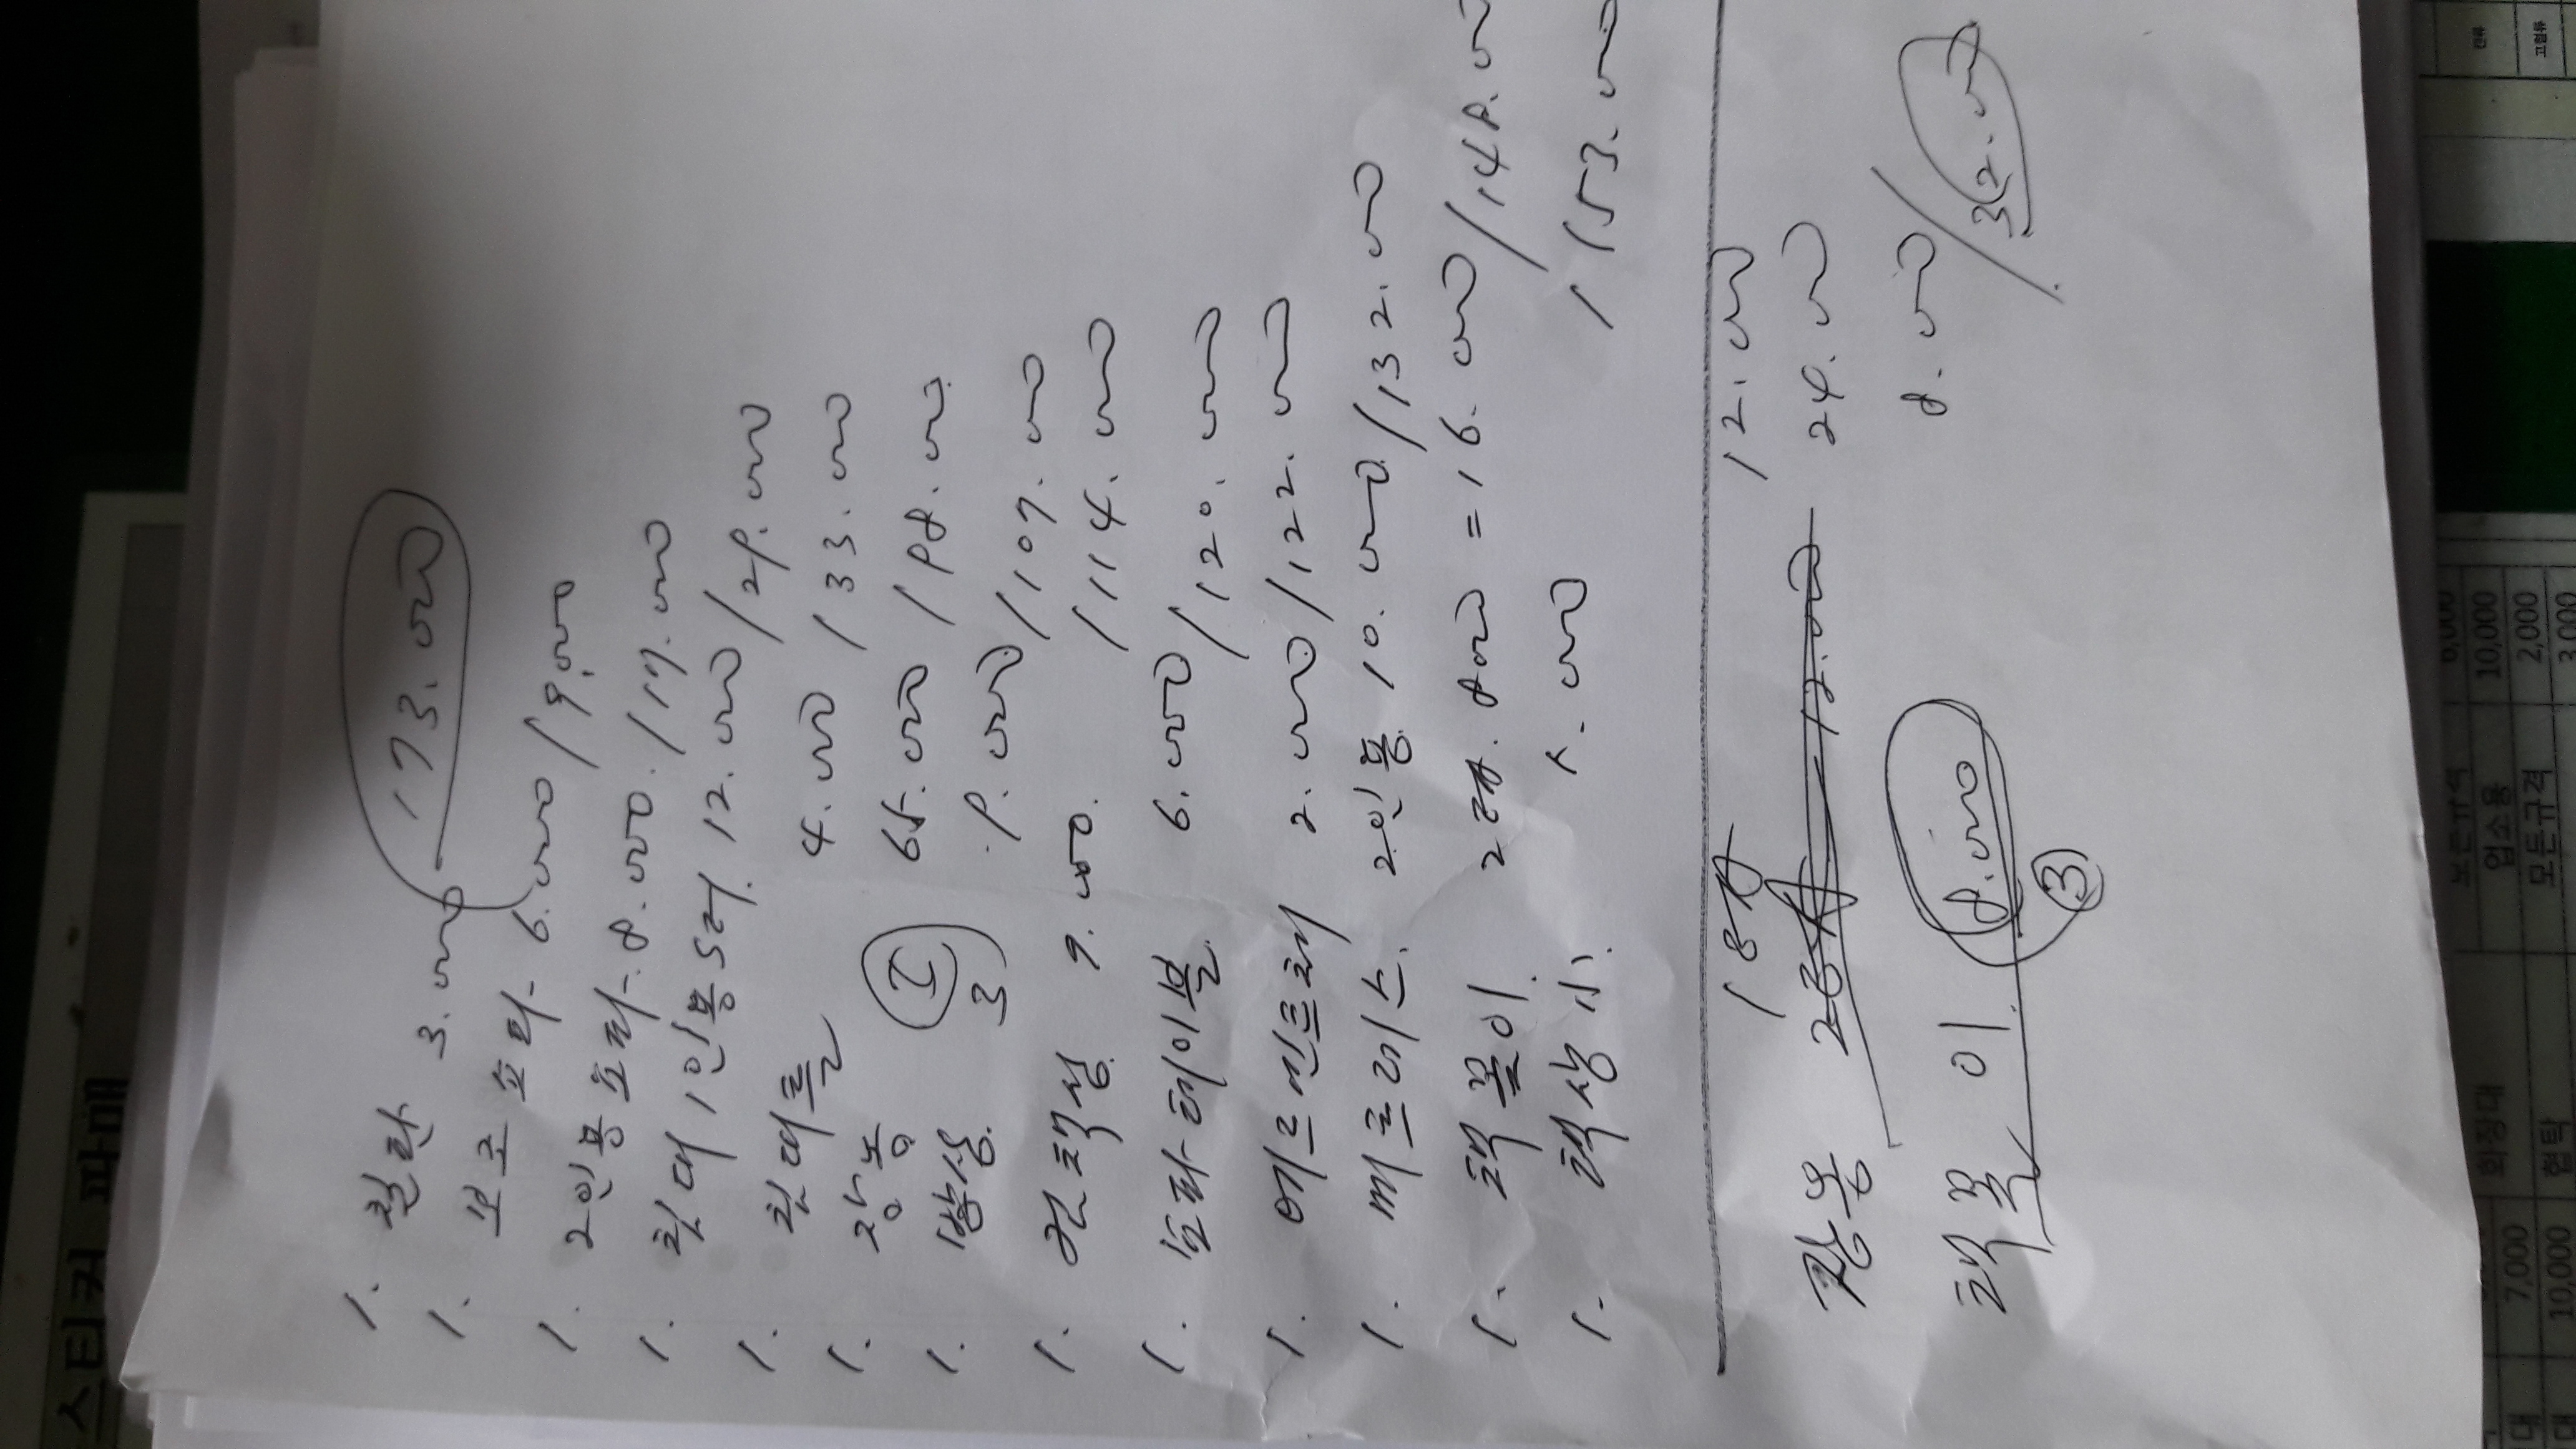 173.000
1. 철판 3.000
1. 보조 쇼파 6.000 / 9.000
1. 2인용 쇼파 8.000 / 17.000
1. 침대 1인용 12.000 / 29.000
1. 침대틀 4.000 / 33.000
1. 장농 65.000 / 98.000
1. 밥상 3 9.000 / 107.000
1. 7.000 / 114.000
1. 쇼파 테이블 6.000 / 120.000
1. 2.000 / 122.000
1. 매트리스 2인용 10.000 / 132.000
1. 책꽂이 2 8.000 = 16.000 / 148.000
1. 책상 小 5.000 / 153.000
18자 12.000
장농 12.000 24.000
책꽂이 8.000 8.000 / 32.000
③
스티커 판매
모든규격
업소용 10,000
모든규격 2,000
3,000
7,000 화장대
10,000 협탁